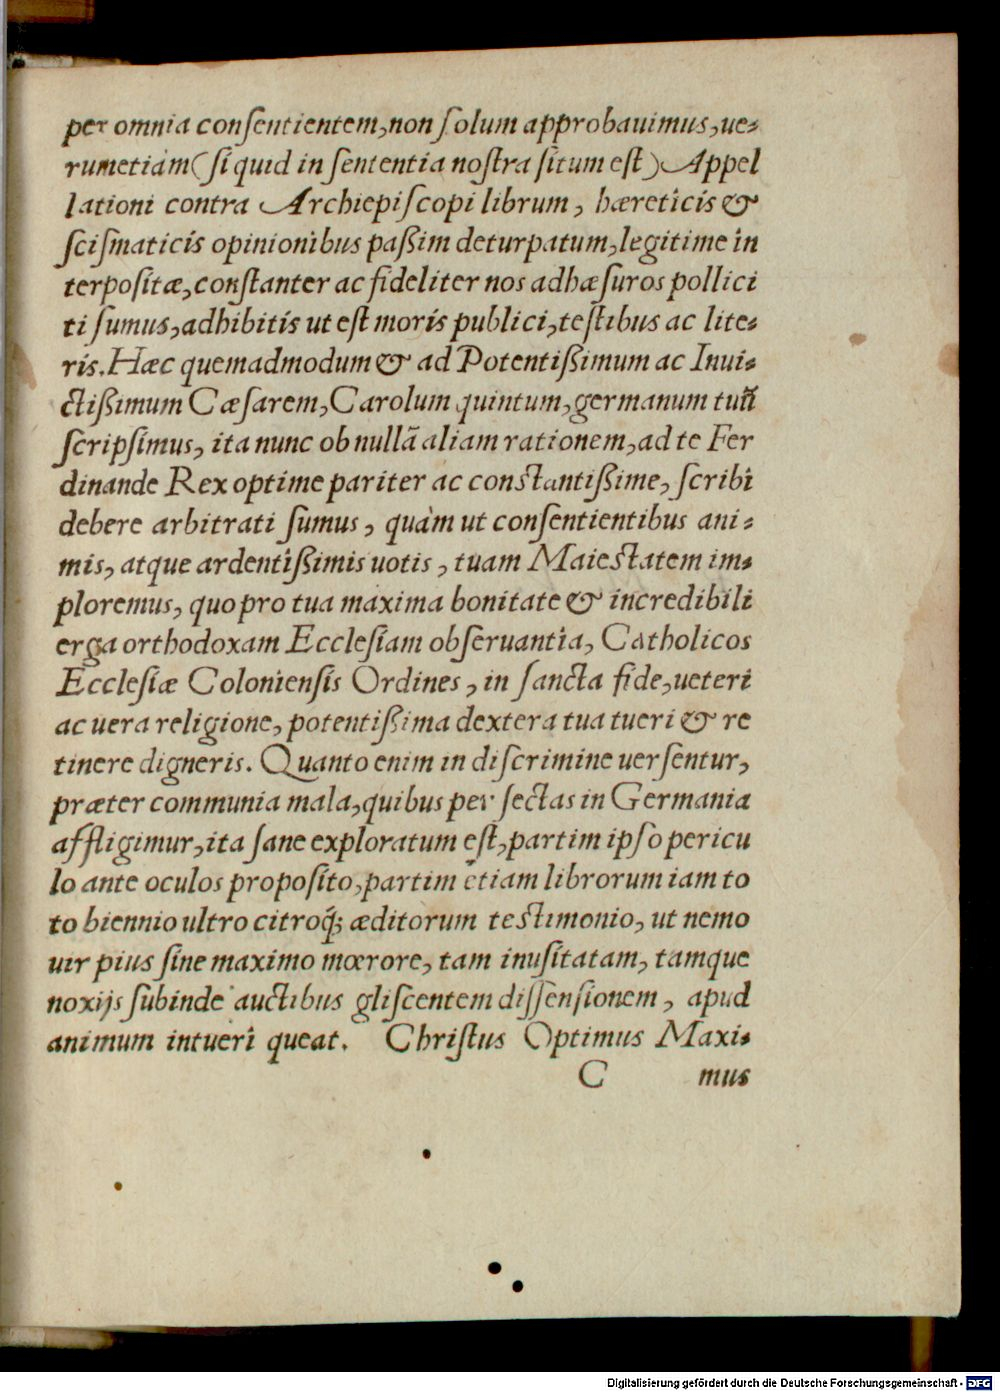 per omnia conſentientem, non ſolum approbauimus, ue-
rumetiàm (ſi quid in ſententia noſtra ſitum eſt) Appel
lationi contra Archiepiſcopi librum, hæreticis &
ſciſmaticis opinionibus paßim deturpatum, legitime in
terpoſitæ, conſtanter ac fideliter nos adhæſuros pollici
ti ſumus, adhibitis ut eſt moris publici, teſtibus ac lite-
ris. Hæc quemadmodum & ad Potentißimum ac Inui-
ctißimum Cæſarem, Carolum quintum, germanum tuũ
ſcripſimus, ita nunc ob nullã aliam rationem, ad te Fer
dinande Rex optime pariter ac conſtantißime, ſcribi
debere arbitrati ſumus, quàm ut conſentientibus ani-
mis, atque ardentißimis uotis, tuam Maieſtatem im-
ploremus, quo pro tua maxima bonitate & incredibili
erga orthodoxam Eccleſiam obſeruantia, Catholicos
Eccleſiæ Colonienſis Ordines, in ſancta fide, ueteri
ac uera religione, potentißima dextera tua tueri & re
tinere digneris. Quanto enim in diſcrimine uerſentur,
præter communia mala, quibus per ſectas in Germania
affligimur, ita ſane exploratum eſt, partim ipſo pericu
lo ante oculos propoſito, partim etiam librorum iam to
to biennio ultro citroq́; æditorum teſtimonio, ut nemo
uir pius ſine maximo mœrore, tam inuſitatam, tamque
noxijs ſubinde auctibus gliſcentem diſſenſionem, apud
animum intueri queat. Chriſtus Optimus Maxi-
C mus
Digitalisierung gefördert durch die Deutsche Forschungsgemeinschaft - DFG